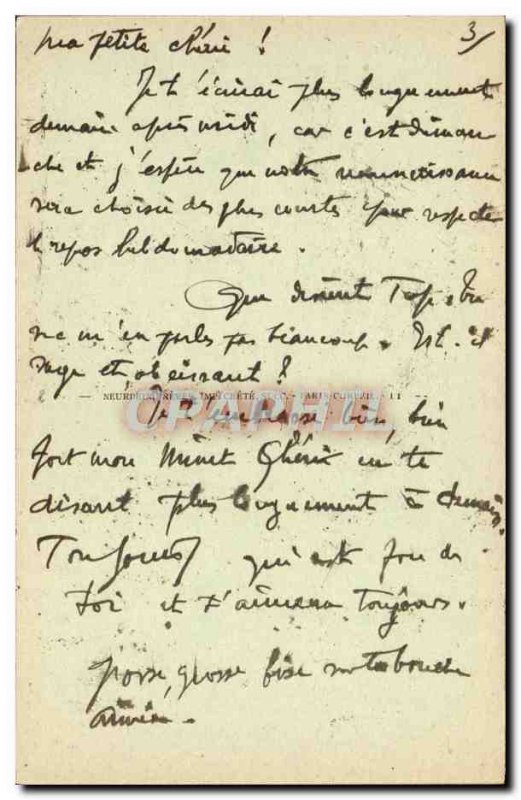 ma petite chérie ! 3/
Je t'écrirai plus longuement
demain après midi, car c'est diman
che et j'espère que notre reconnaissance
sera choisie des plus courtes pour respecter
le repos hebdomadaire.
Que devient Top, tu
ne m'en parles pas beaucoup. Est-il
sage et obéissant ?
Je t'embrasse bien, bien
fort mon Minet Chéri en te
disant plus longuement à demain.
Ton qui est fou de
Toi et t'aimera toujours.
grosse, grosse bise sur ta bouche
aimée.
NEURDEIN PARIS 11
CPAPHIL